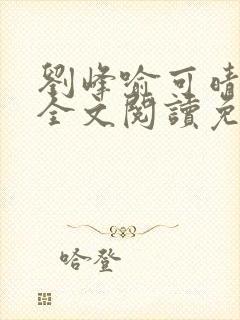 劉峰喻可晴
全文閱讀免
哈登